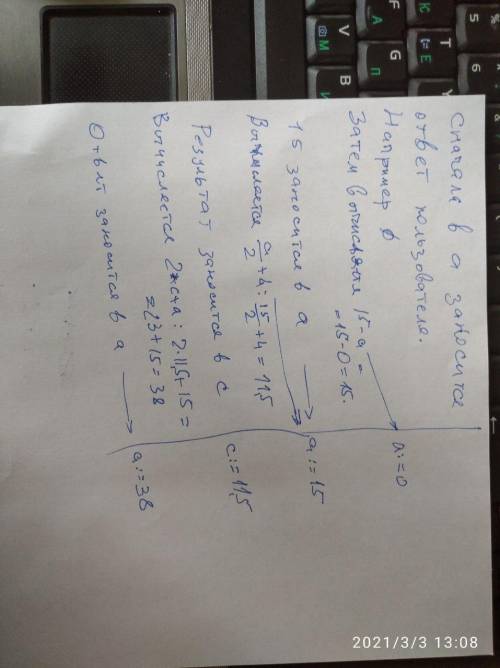 Сначала в а заносится
ответ пользователя.
Например 0 a:=0
Затем вычисляется 15-a =
= 15-0=15.
15 заносится в а a:=15
Вычисляется a/2 + 4 : 15/2 + 4 = 11,5
Результат заносится в с c:=11,5
Вычисляется 2*c+a : 2·11,5+15 =
= 23+15 = 38
Ответ заносится в а a:=38
2021/3/3 13:08